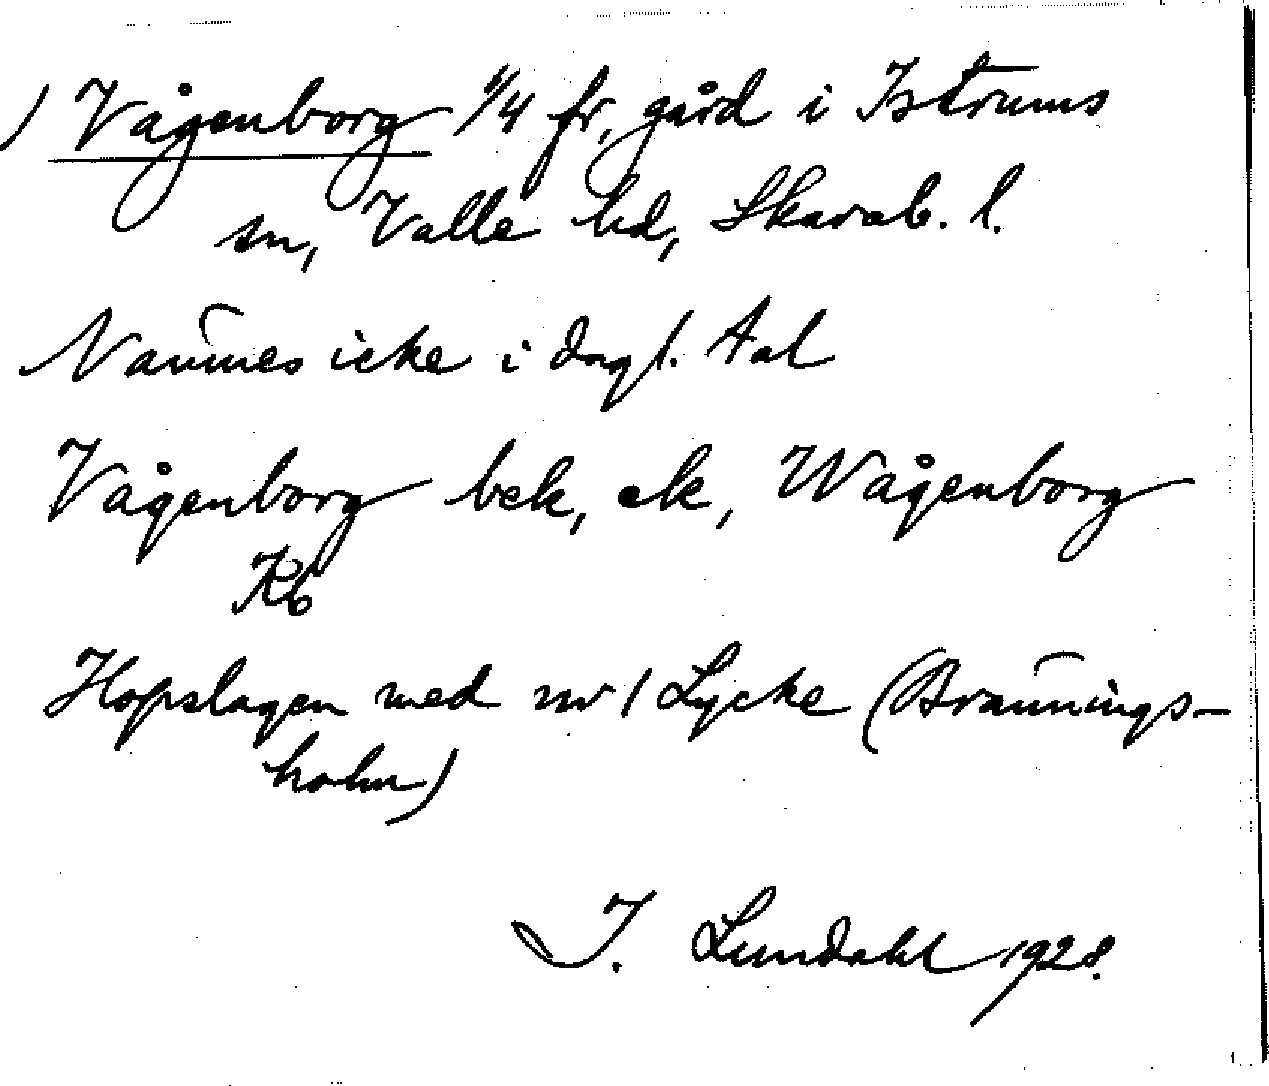 / Vågenborg 1/4 fr, gård i Istrums
sn, Valle hd, Skarab. l.
Nam̄es icke i dagl. tal
Vågenborg bek, ek, Wågenborg
Kb
Hopslagen med nr 1 Lycke (Bram̄ings-
holm)
I. Lundahl 1928.